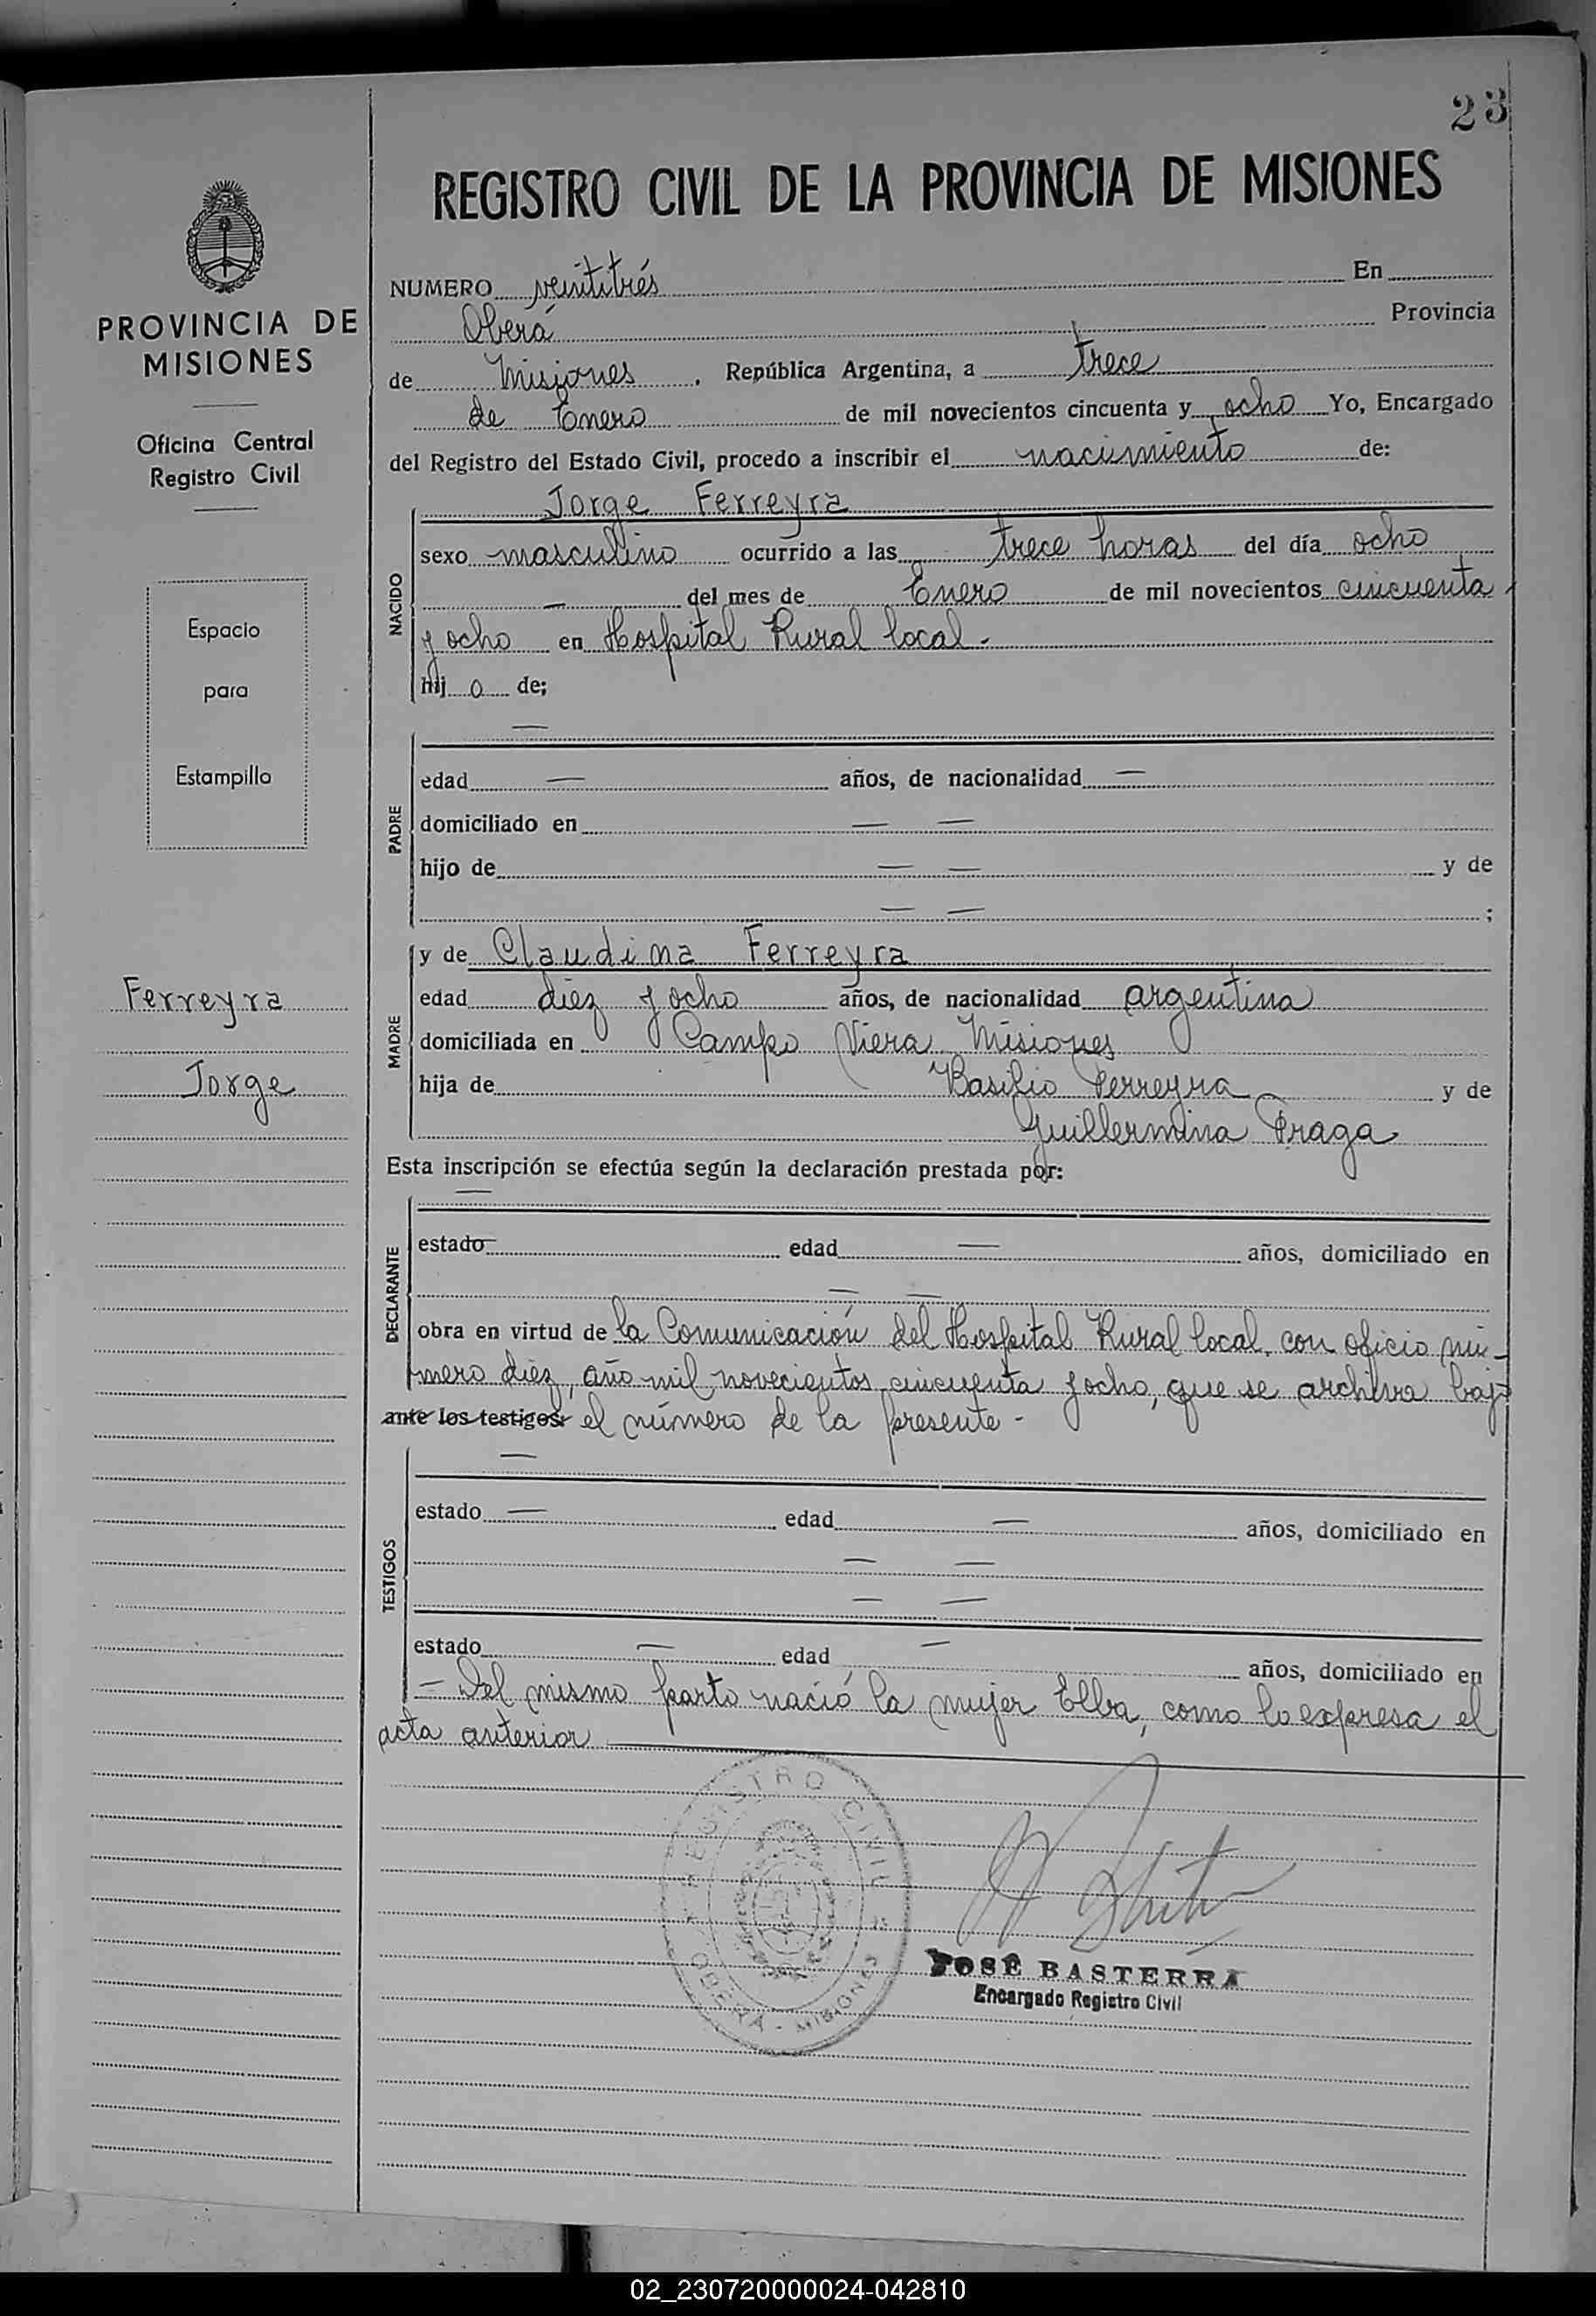 23
REGISTRO CIVIL DE LA PROVINCIA DE MISIONES
PROVINCIA DE
MISIONES
Oficina Central
Registro Civil
Espacio
para
Estampilla
Ferreyra
Jorge
NUMERO veintitrés En
Oberá Provincia
de Misiones, República Argentina, a trece
de Enero de mil novecientos cincuenta y ocho Yo, Encargado
del Registro del Estado Civil, procedo a inscribir el nacimiento de:
NACIDO
Jorge Ferreyra
sexo masculino ocurrido a las trece horas del día ocho
— del mes de Enero de mil novecientos cincuenta
y ocho en Hospital Rural local.-
hij o de;
PADRE
—
edad — años, de nacionalidad —
domiciliado en — —
hijo de — — y de
— — ;
MADRE
y de Claudina Ferreyra
edad diez y ocho años, de nacionalidad argentina
domiciliada en Campo Viera, Misiones
hija de Basilio Ferreyra y de
Guillermina Fraga
Esta inscripción se efectúa según la declaración prestada por:
DECLARANTE
—
estado — edad — años, domiciliado en
— —
obra en virtud de la Comunicación del Hospital Rural local, con oficio nú-
mero diez, año mil novecientos cincuenta y ocho, que se archiva bajo
ante los testigos: el número de la presente -
TESTIGOS
—
estado — edad — años, domiciliado en
— —
— —
estado — edad — años, domiciliado en
- Del mismo parto nació la mujer Elba, como lo expresa el
acta anterior
REGISTRO CIVIL
OBERÁ - MISIONES
JOSÉ BASTERRA
Encargado Registro Civil
02_230720000024-042810